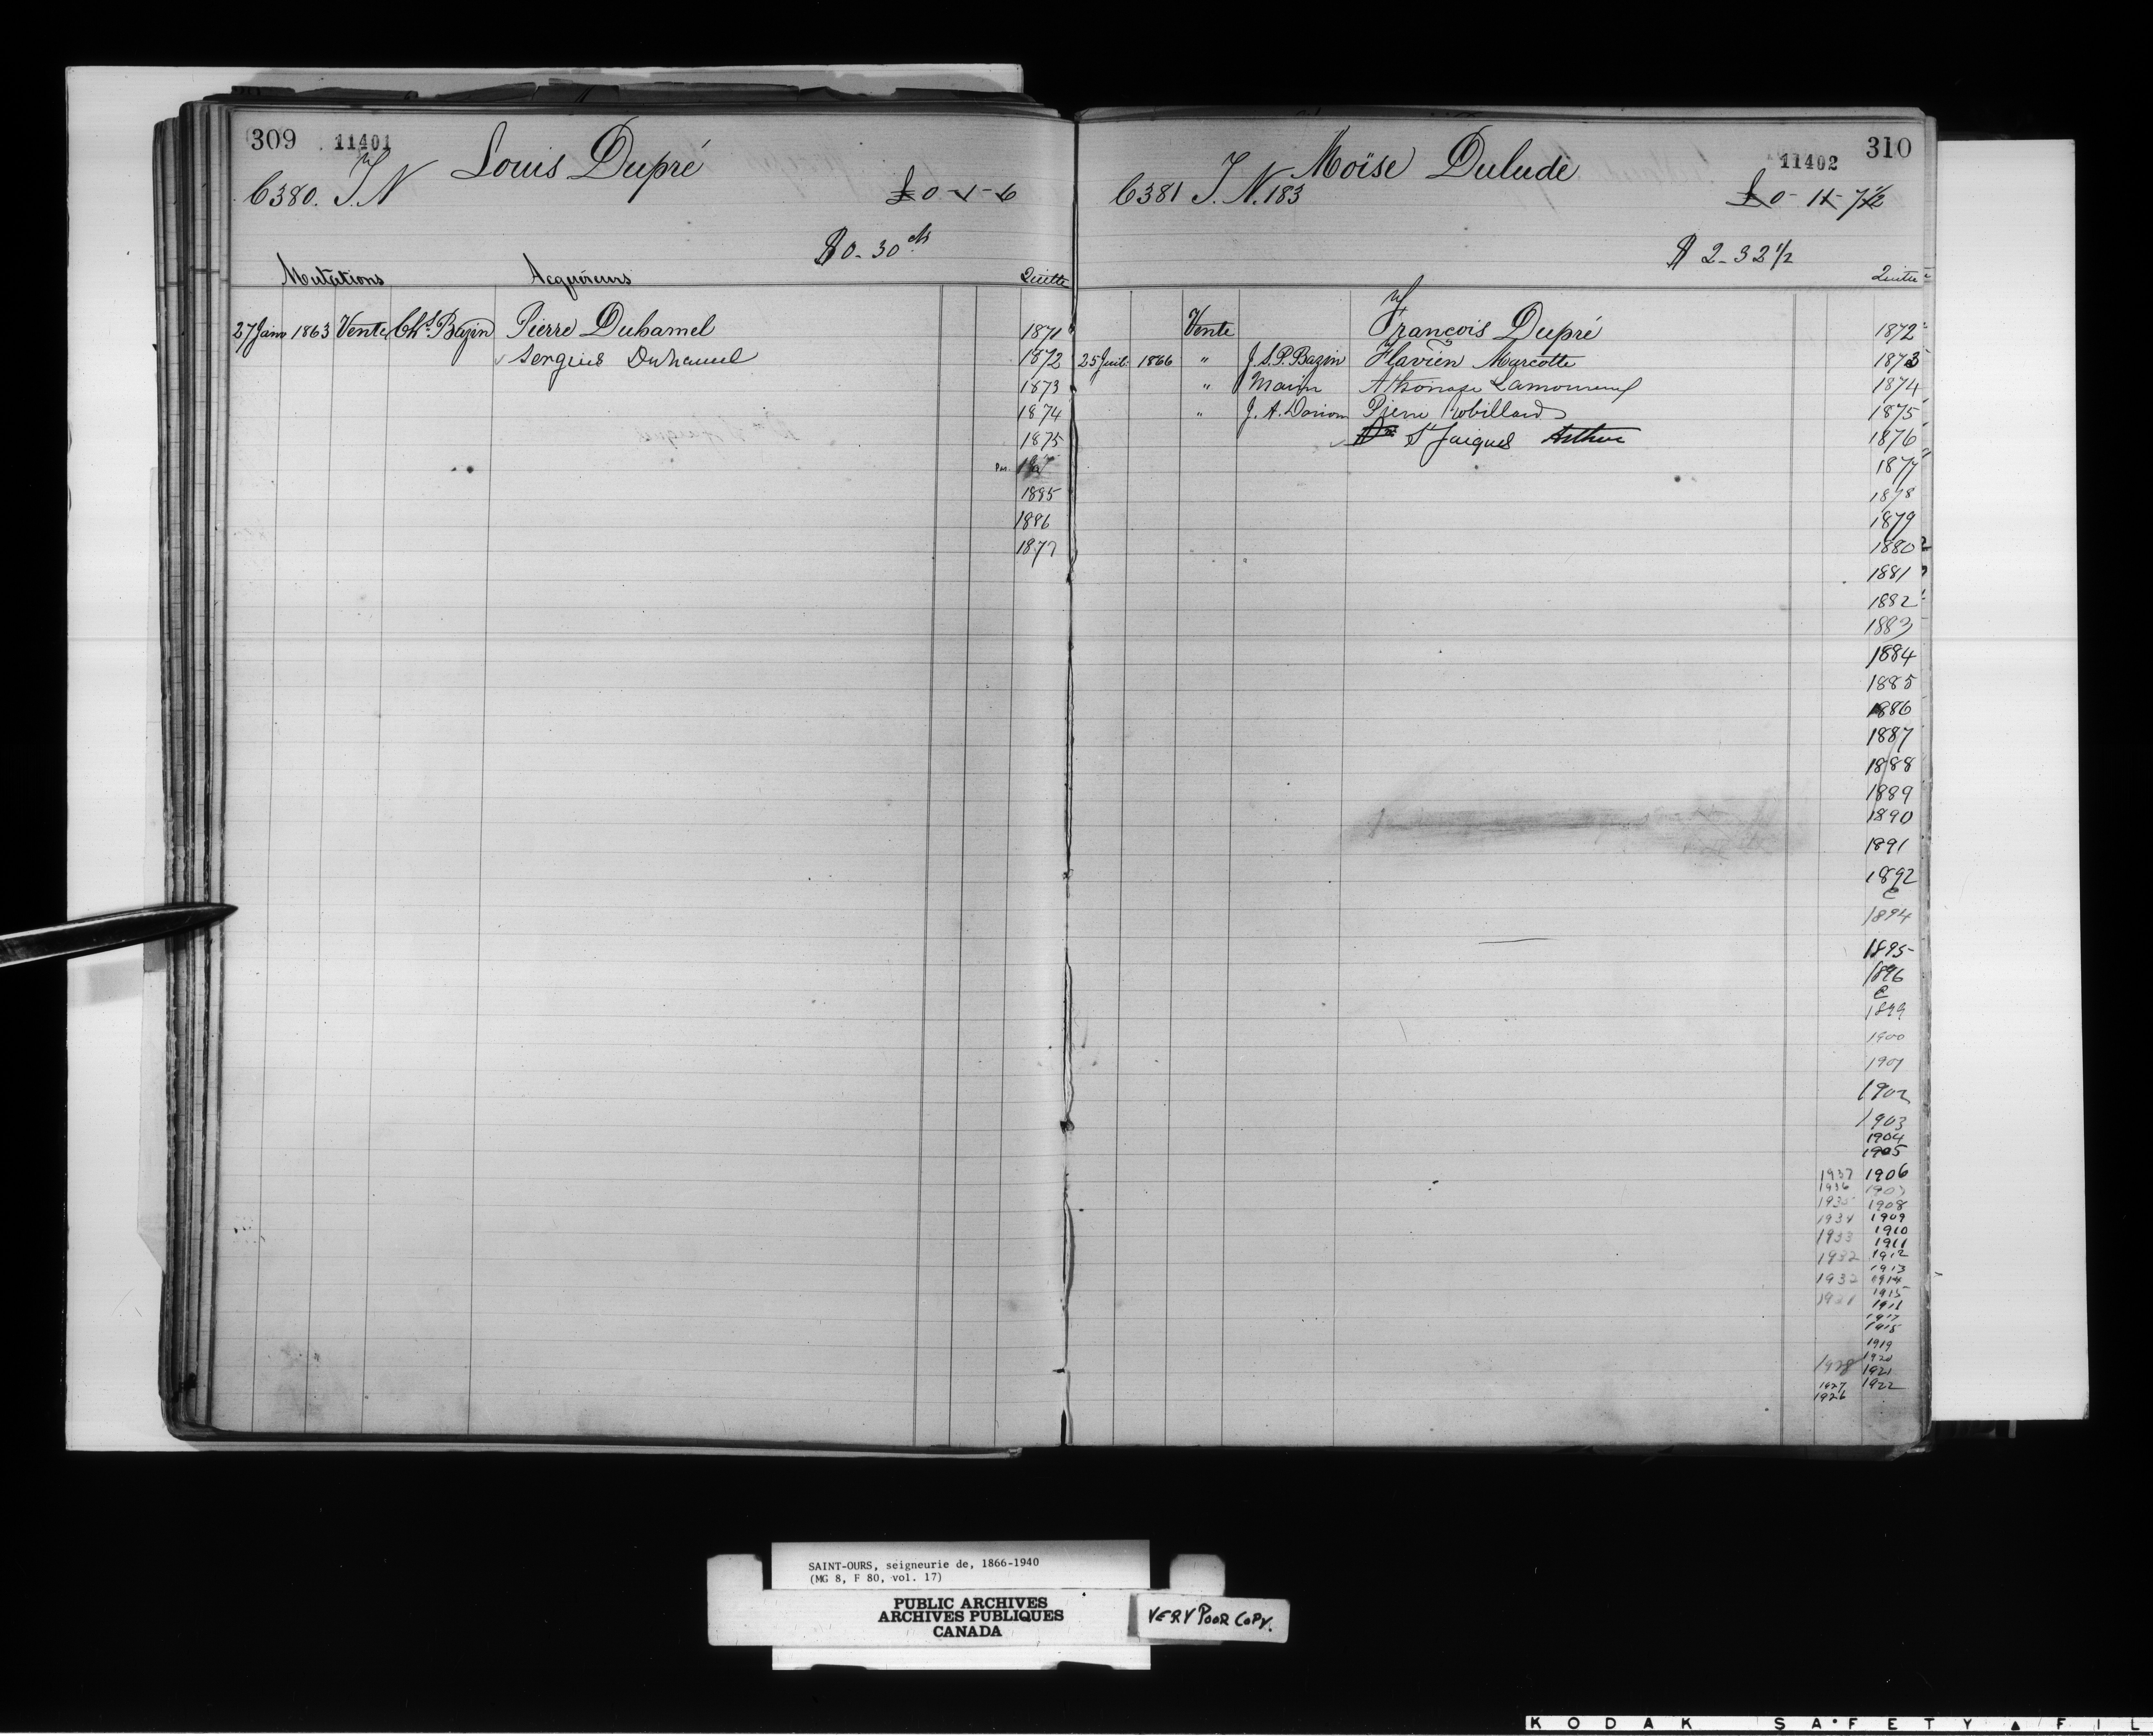 309 11401
Louis Dupré
C380. T.N
£ 0-1-6
$0-30 cts
Mutations Acquéreurs Quitte
27 Janv 1863 Vente Chs Bazin Pierre Duhamel 1871
Sergius Duhamel 1872
1873
1874
1875
1895
1896
1877
310
11402
Moïse Dulude
C381 T.N. 183
£ 0-11-7 1/2
$ 2-32 1/2
Quitte
Vente François Dupré 1872
25 Juil. 1866 " J.S.P. Bazin Flavien Marcotte 1873
" Marin Athanase Lamoureux 1874
" J.A. Dorion Pierre Robillard 1875
St Jacques Arthur 1876
1877
1878
1879
1880
1881
1882
1883
1884
1885
1886
1887
1888
1889
1890
1891
1892
1894
1895
1896
1899
1900
1901
1902
1903
1904
1905
1937 1906
1936
1935 1908
1934 1909
1910
1933 1911
1932 1912
1913
1932 1914
1915
1916
1917
1918
1919
1920
1928 1921
1927 1922
1926
SAINT-OURS, seigneurie de, 1866-1940
(MG 8, F 80, vol. 17)
PUBLIC ARCHIVES
ARCHIVES PUBLIQUES
CANADA
VERY POOR COPY.
KODAK SAFETY FIL